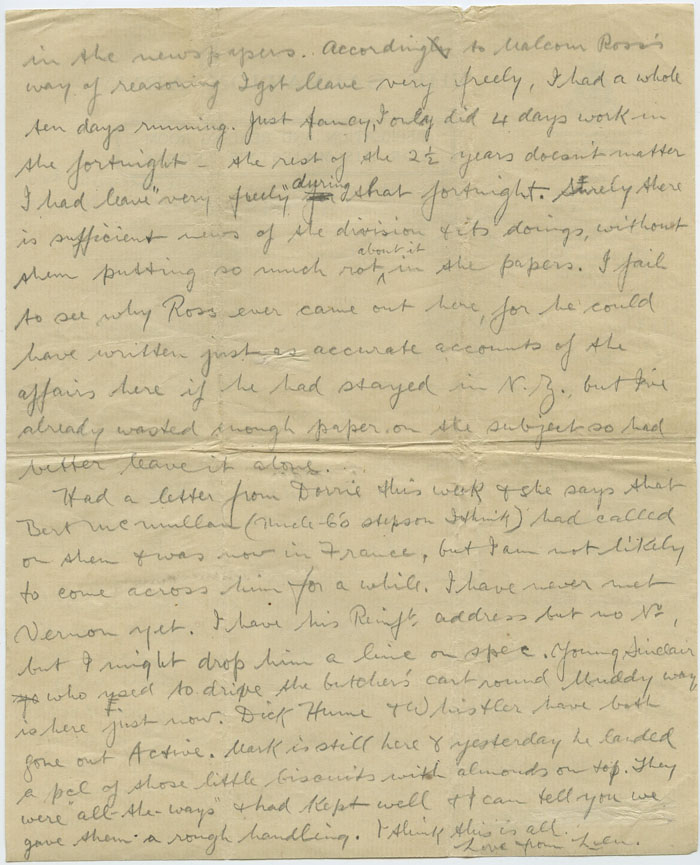 in the newspapers. According to Malcom Ross's
way of reasoning I got leave very freely, I had a whole
ten days running. Just fancy, I only did 4 days work in
the fortnight - the rest of the 2½ years doesn't matter
I had leave "very freely" during that fortnight. Surely there
is sufficient news of the division & its doings, without
them putting so much rot about it in the papers. I fail
to see why Ross ever came out here, for he could
have written just as accurate accounts of the
affairs here if he had stayed in N.Z., but I've
already wasted enough paper on the subject so had
better leave it alone...
Had a letter from Dorrie this week & she says that
Bert McMullan (Uncle G's stepson I think) had called
on them & was now in France, but I am not likely
to come across him for a while. I have never met
Vernon yet. I have his Reinft. address but no No,
but I might drop him a line on spec. Young Sinclair
who used to drive the butcher's cart round Muddy way
is here just now. Dick Hume & Whistler have both
gone out Active. Mark is still here & yesterday he landed
a pcl of those little biscuits with almonds on top. They
were "all-the-ways" & had kept well & I can tell you we
gave them a rough handling. I think this is all.
Love from